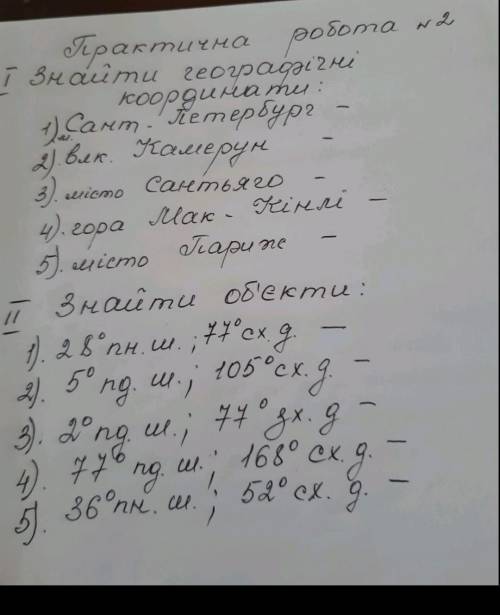 Практична робота №2
I Знайти географічні
координати:
1) м. Сант-Петербург –
2). влк. Камерун –
3). місто Сантьяго –
4). гора Мак-Кінлі –
5). місто Париж –
II Знайти об'єкти:
1). 28° пн. ш.; 77° сх. д. –
2). 5° пд. ш.; 105° сх. д. –
3). 2° пд. ш.; 77° зх. д –
4). 77° пд. ш.; 168° сх. д. –
5). 36° пн. ш.; 52° сх. д. –